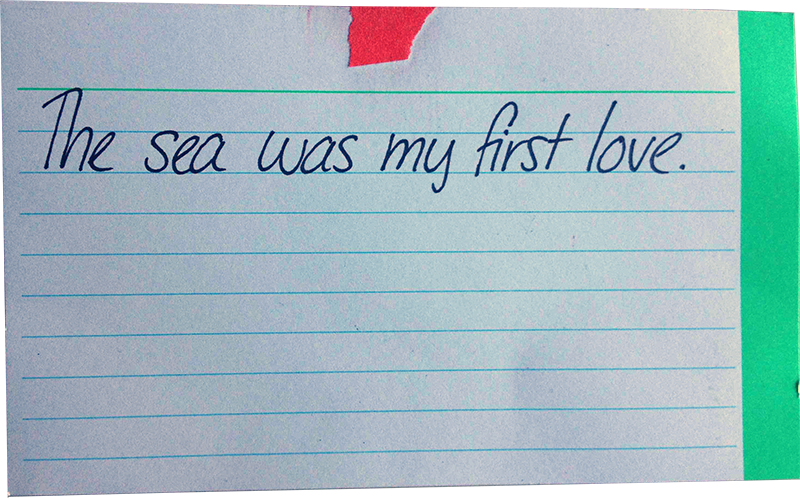 The sea was my first love.